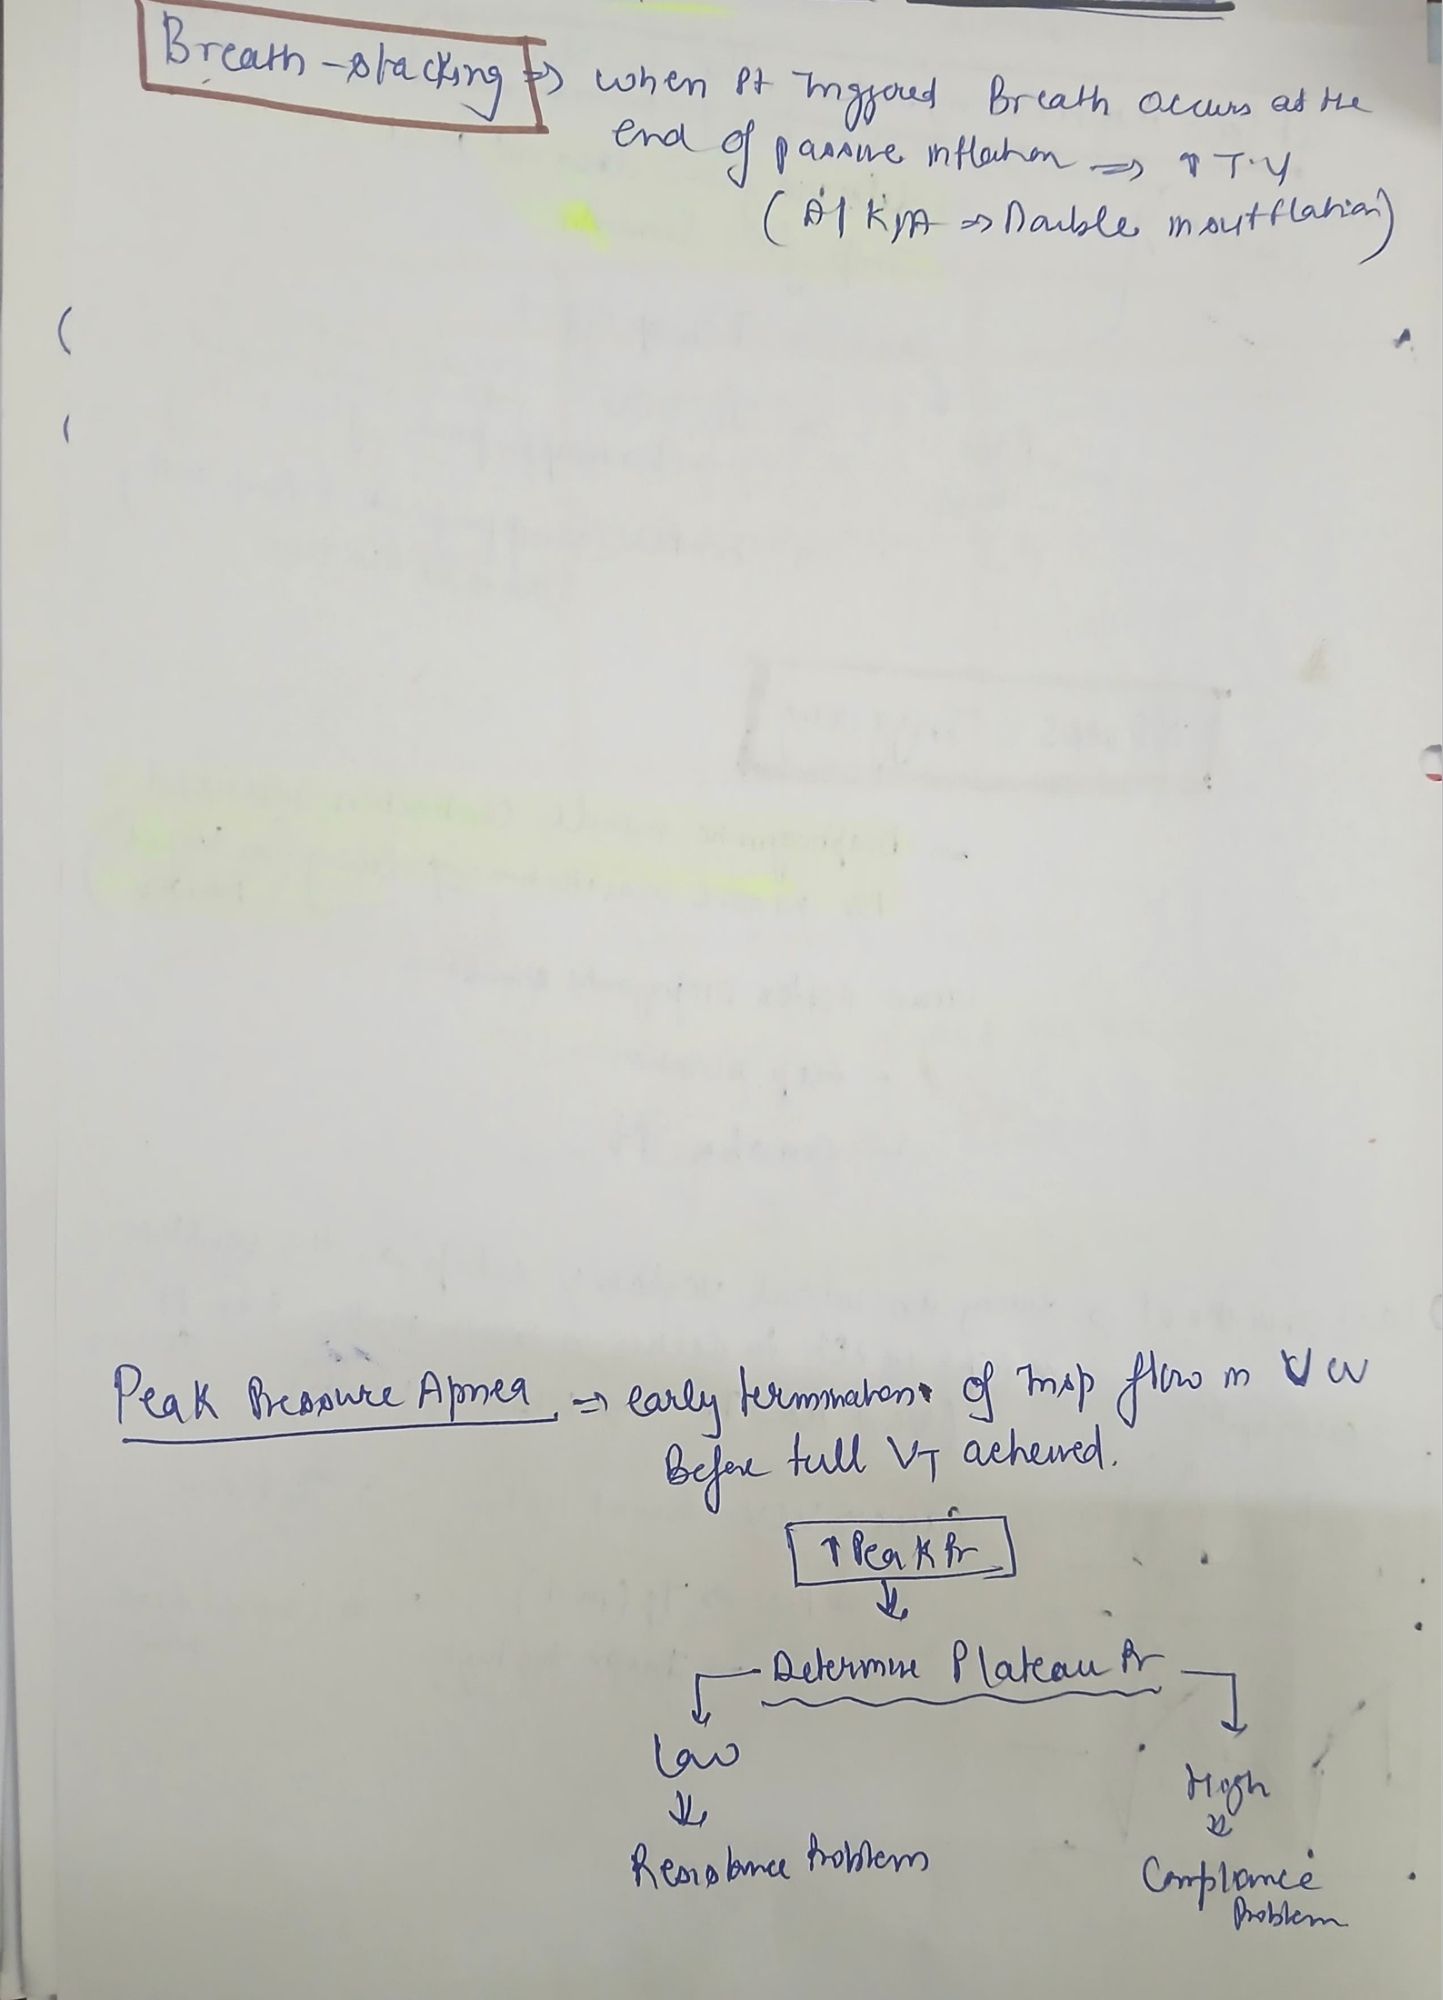 Breath-stacking ⇒ when Pt Triggered Breath occurs at the
end of passive inflation ⇒ ↑ T.V
(A/K/A ⇒ Double insufflation)
Peak Pressure Apnea ⇒ early termination of Insp flow in
Before full VT acheived.
↑ Peak Pr
Determine Plateau Pr
Low
High
Resistance Problem
Compliance
Problem